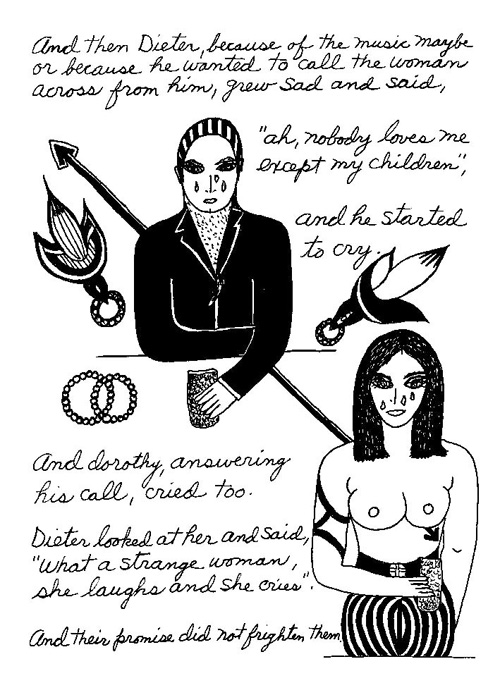 And then Dieter, because of the music maybe
or because he wanted to call the woman
across from him, grew sad and said,
"ah, nobody loves me
except my children",
and he started
to cry.
And dorothy, answering
his call, cried too.
Dieter looked at her and said,
"What a strange woman,
she laughs and she cries".
And their promise did not frighten them.